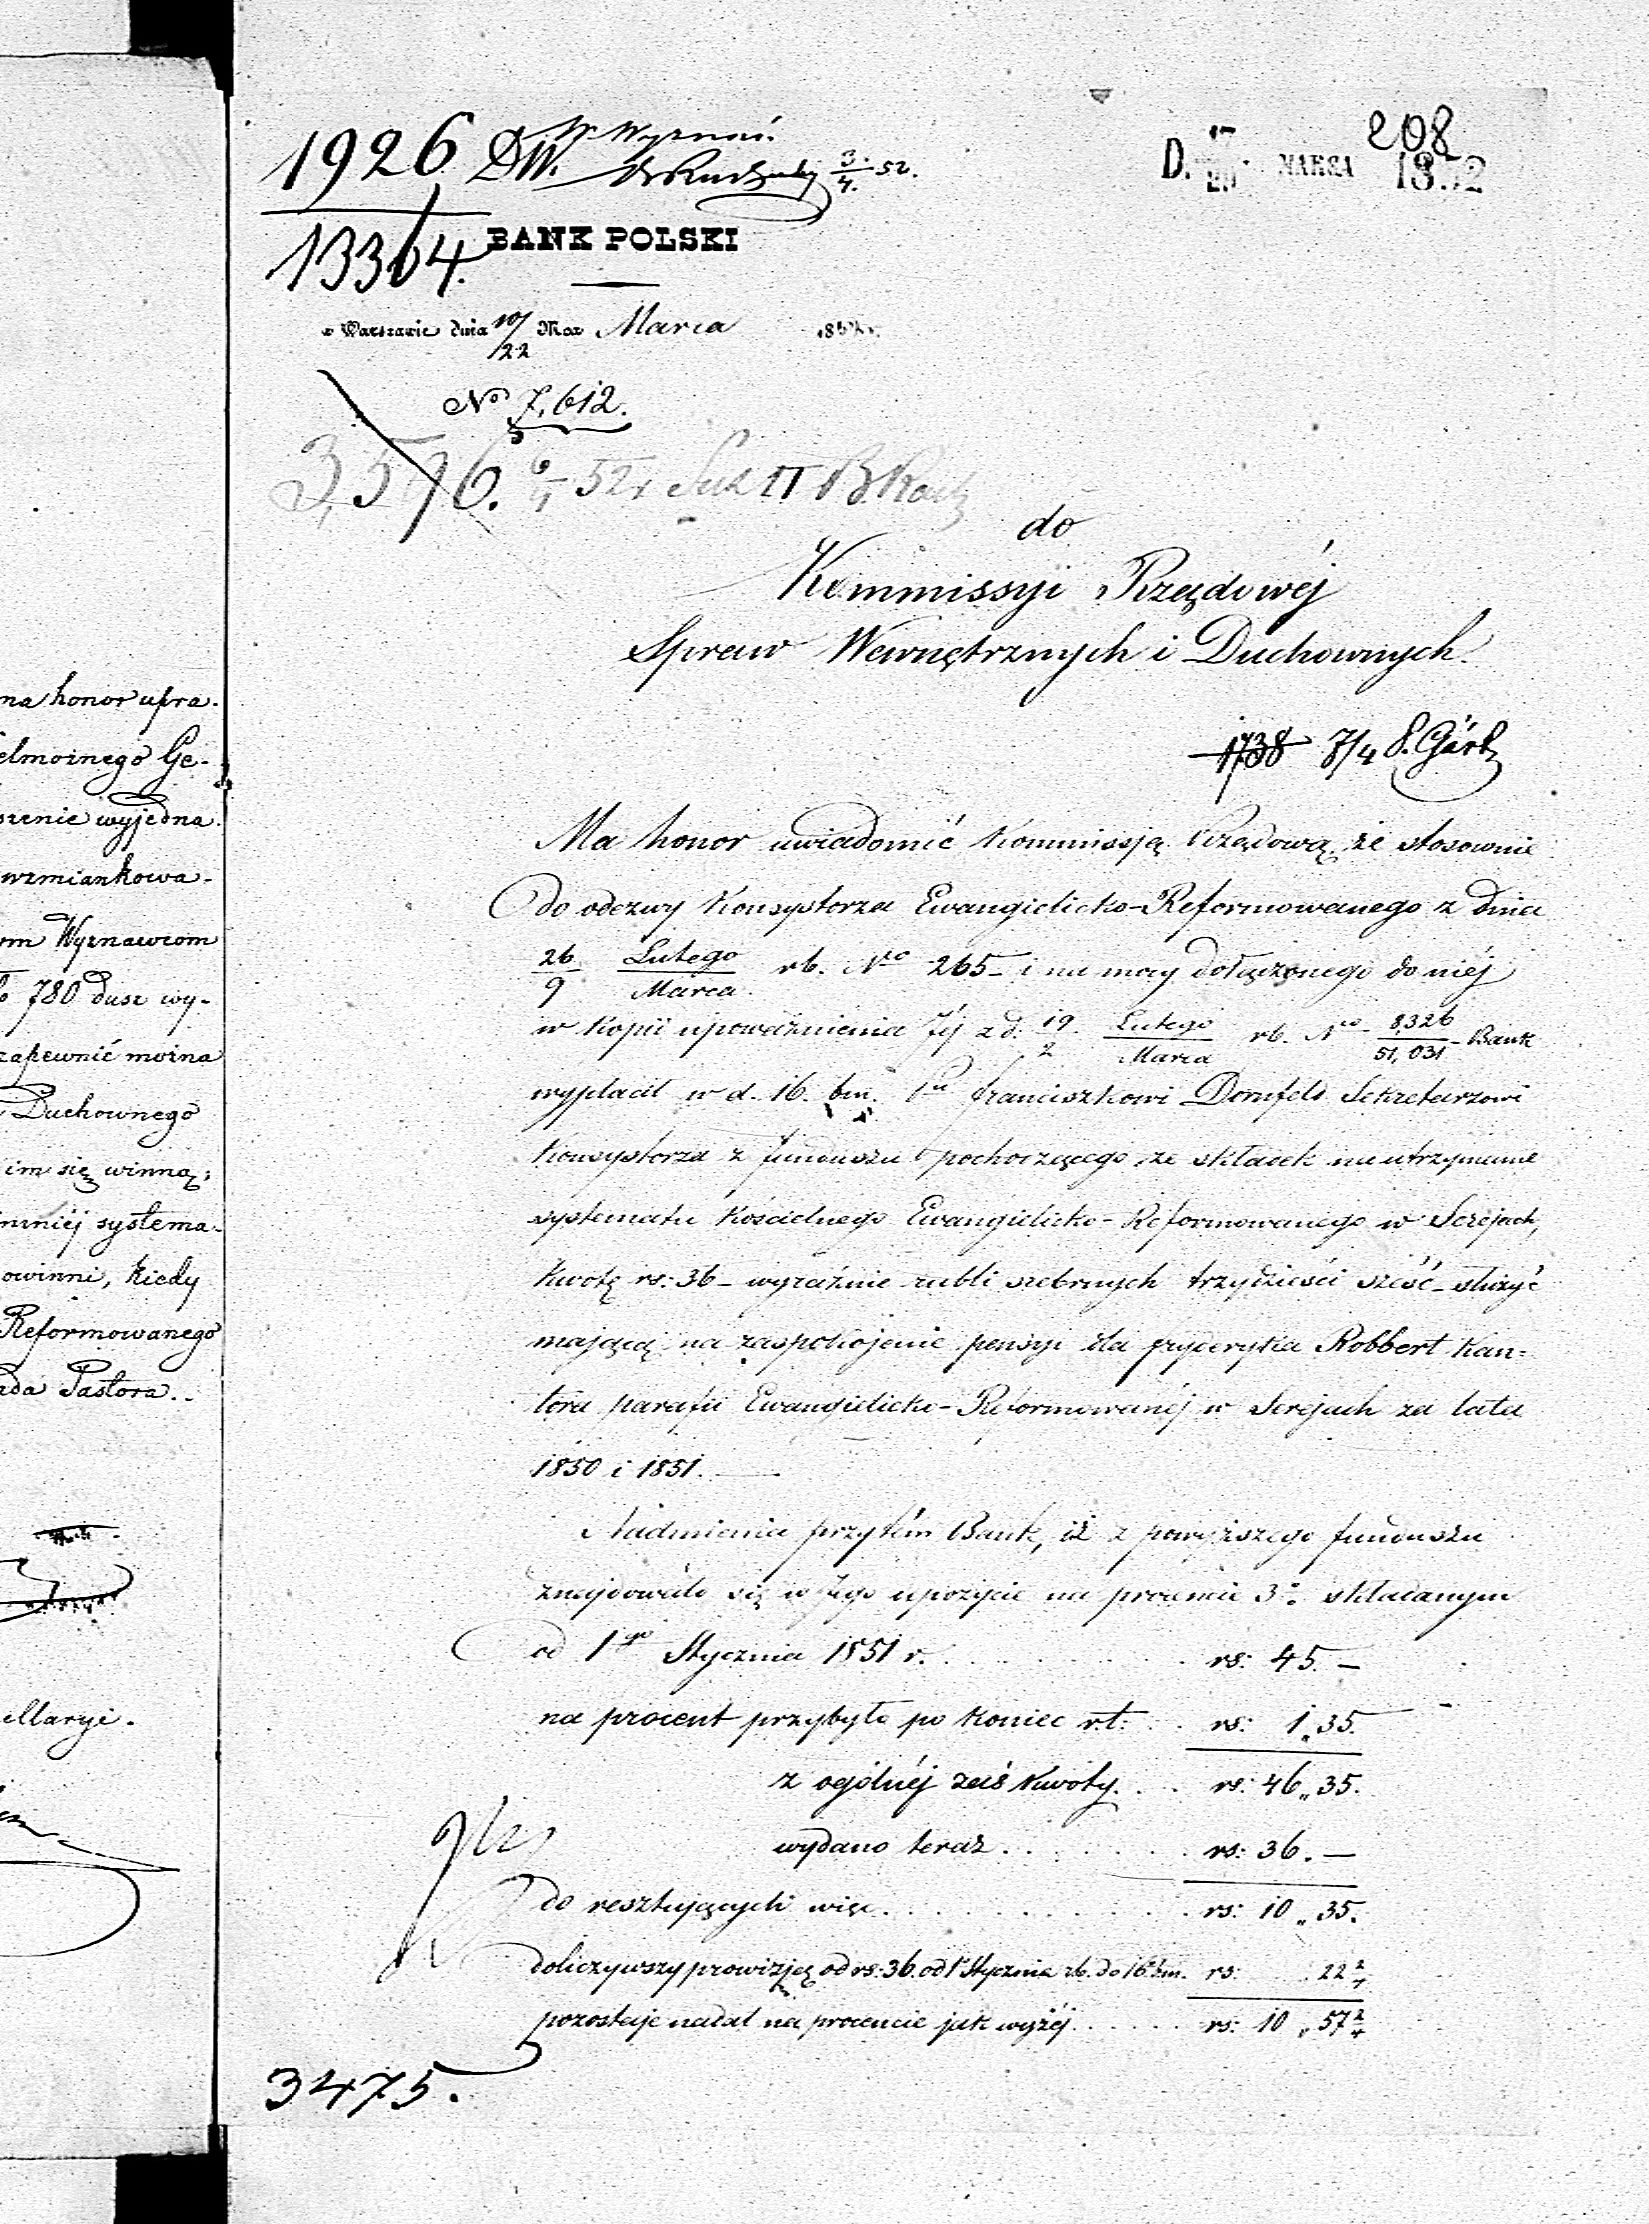 na honor upra-
elmożnego Ge-
szenie wyjedna-
wzmiankowa-
om Wyznawcom
780 dusz wy-
zapewnić można
Duchownego
im się winną;
mniéj systema-
owinni, kiedy
Reformowanego
Pastora.
ellaryi.
208
1926 DW. W. Wyznań.
3/4 52.
D. 17/29 MARCA 1852
13364.
BANK POLSKI
w Warszawie dnia 10/22 Mca Marca 1852 r.
No 7,612.
3,596. 52 r
do
Kommissyi Rządowéj
Spraw Wewnętrznych i Duchownych.
1738 7/4
Ma honor uwiadomić Kommissją Rządową, że stosownie
do odezwy Konsystorza Ewangielicko-Reformowanego z dnia
26/9 Lutego/Marca rb. No 265 - i na mocy dołączonego do niéj
w Kopii upoważnienia Jéj z d. 19/2 Lutego/Marca rb. No 8,326/51,031 - Bank
wypłacił w d. 16. bm. Pu Franciszkowi Dornfeld Sekretarzowi
Konsystorza z funduszu pochodzącego ze składek na utrzymanie
systematu Kościelnego Ewangielicko-Reformowanego w Serejach,
Kwotę rs: 36 - wyraźnie rubli srebrnych trzydzieści sześć - służyć
mającą na zaspokojenie pensyi dla fryderyka Robbert Kan-
tora parafii Ewangielicko-Reformowanéj w Serejach za lata
1850 i 1851. -
Nadmienia przytém Bank, iż z powyższego funduszu
znajdowało się w Jego depozycie na procencie 3% składanym
od 1go Stycznia 1851 r. . . . . rs: 45. -
na procent przybyło po koniec r.t. . . rs: 1„35.
z ogólnéj zaś Kwoty. . . rs: 46„35.
wydano teraz . . . . rs: 36. -
do resztujących więc . . . . . rs: 10„35.
doliczywszy prowizję od rs: 36. od 1 Stycznia rb. do 16 bm. rs: 22 2/4
pozostaje nadal na procencie jak wyżéj . . . . rs: 10„57 2/4
3475.